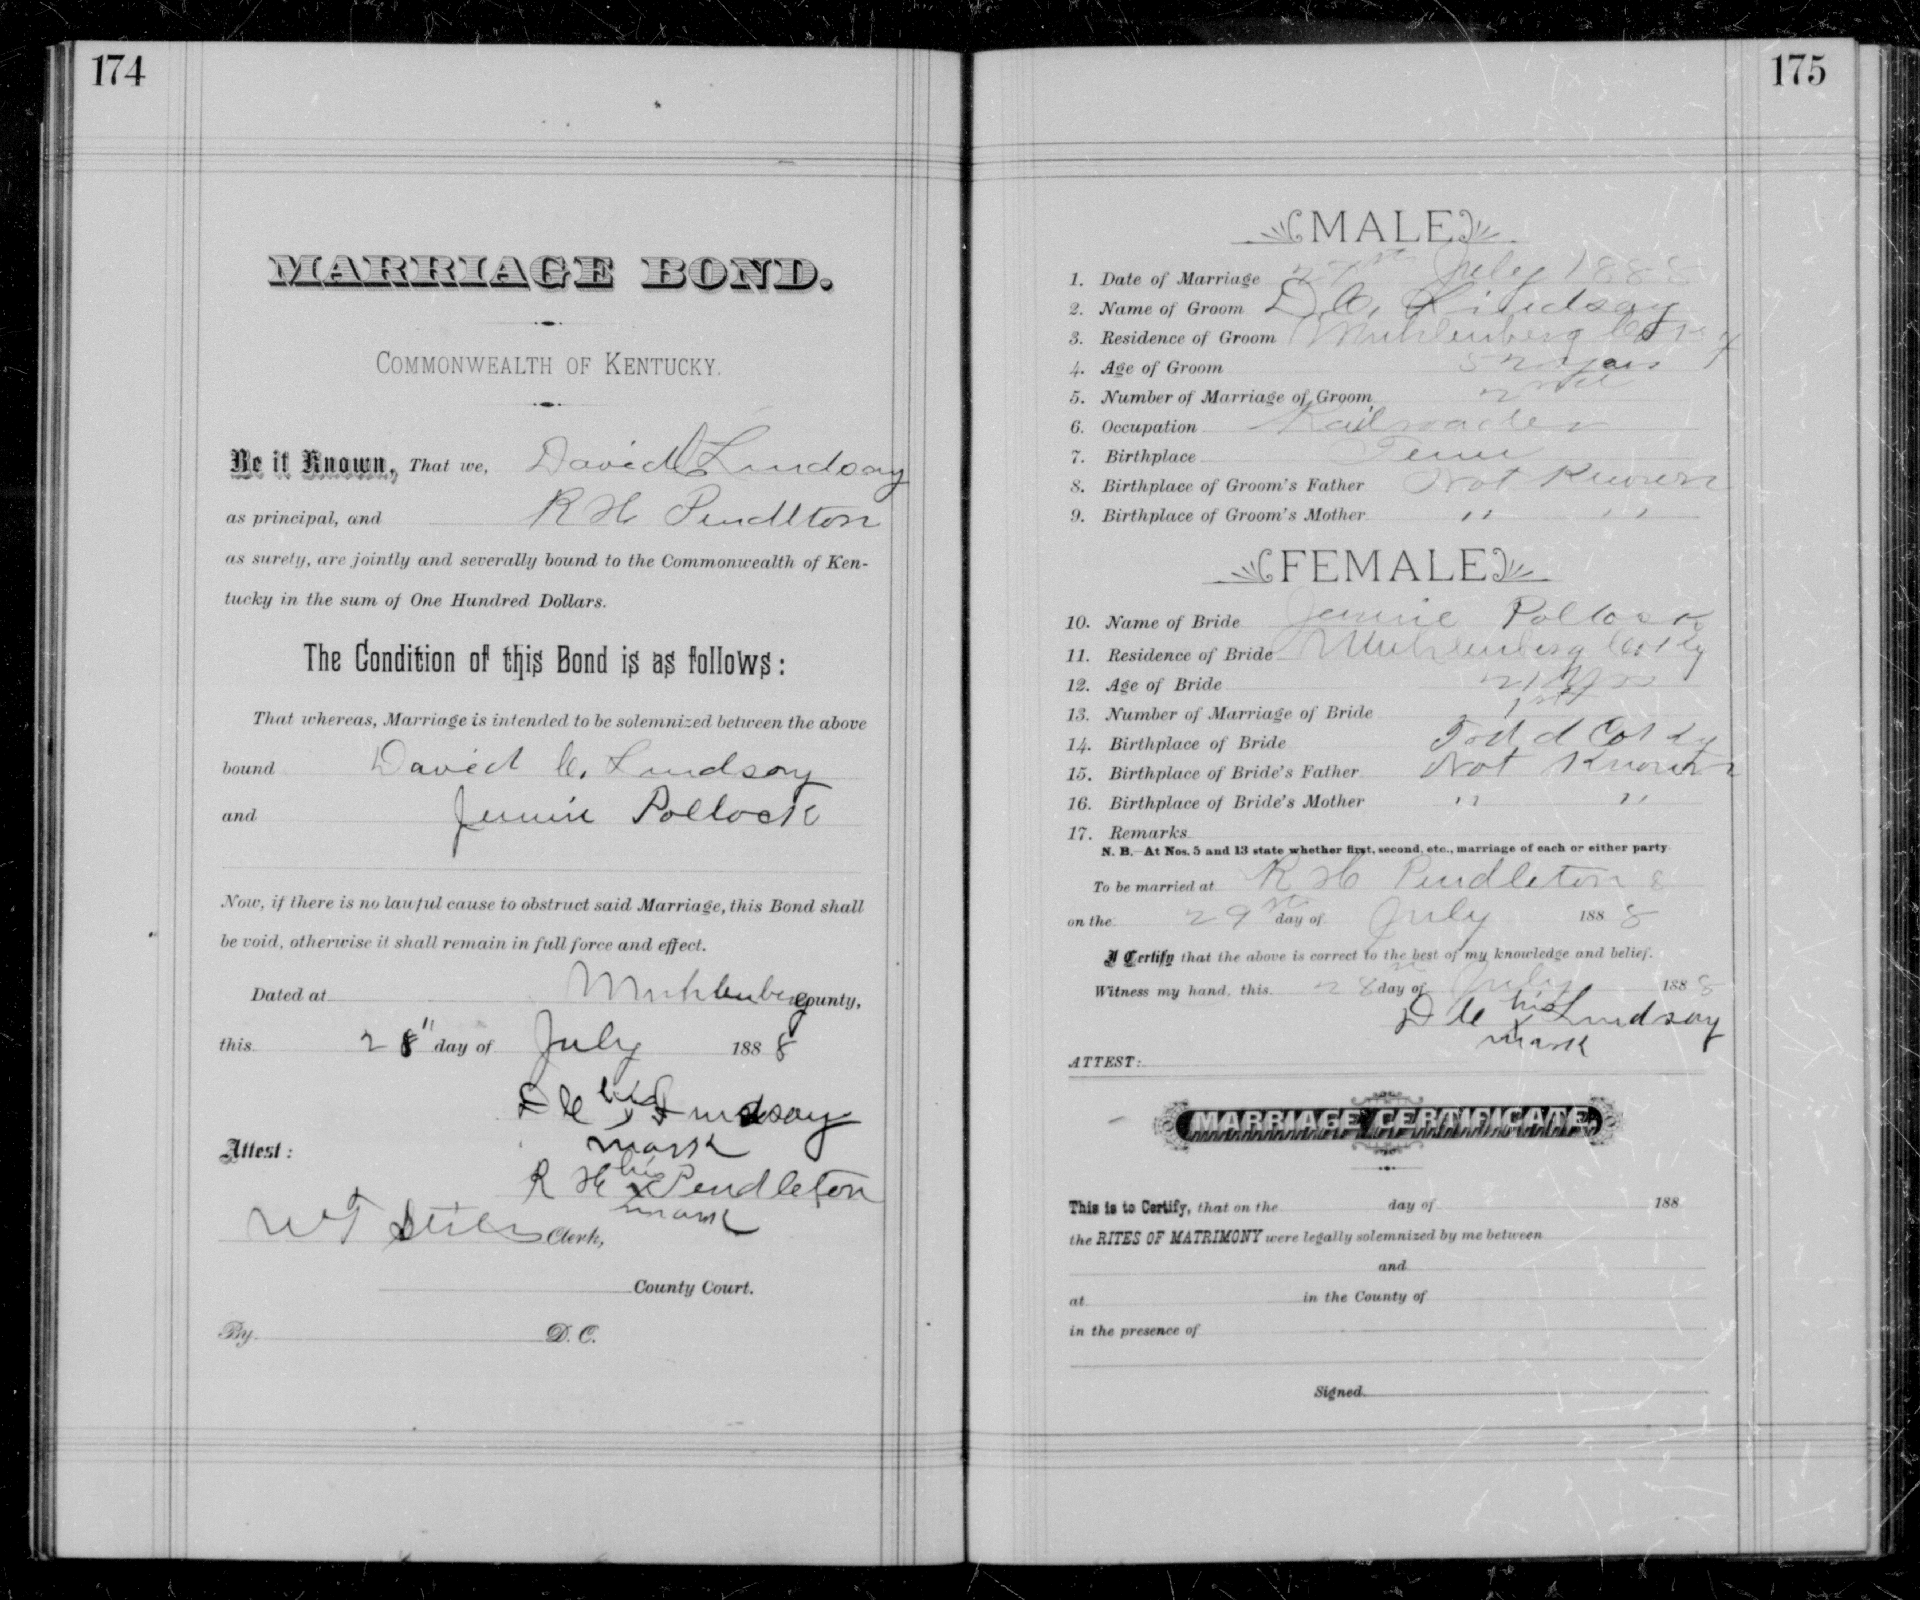 174
MARRIAGE BOND.
COMMONWEALTH OF KENTUCKY.
Be it Known, That we, David C Lindsay
as principal, and R H Pendlton
as surety, are jointly and severally bound to the Commonwealth of Ken-
tucky in the sum of One Hundred Dollars.
The Condition of this Bond is as follows:
That whereas, Marriage is intended to be solemnized between the above
bound David C. Lindsay
and Jennie Pollock
Now, if there is no lawful cause to obstruct said Marriage, this Bond shall
be void, otherwise it shall remain in full force and effect.
Dated at Muhlenberg County,
this 28" day of July 1888
D C his x Lindsay
mark
Attest:
R H his x Pendleton
mark
W T Stiles Clerk,
County Court.
By D. C.
175
MALE
1. Date of Marriage 29st July 1888
2. Name of Groom D C. Lindsay
3. Residence of Groom Muhlenberg Co Ky
4. Age of Groom 52 years
5. Number of Marriage of Groom 2nd
6. Occupation Railroader
7. Birthplace Tenn
8. Birthplace of Groom's Father Not Known
9. Birthplace of Groom's Mother " "
FEMALE
10. Name of Bride Jennie Pollock
11. Residence of Bride Muhlenberg Co Ky
12. Age of Bride 21 yrs
13. Number of Marriage of Bride 1st
14. Birthplace of Bride Todd Co Ky
15. Birthplace of Bride's Father Not Known
16. Birthplace of Bride's Mother " "
17. Remarks
N. B.—At Nos. 5 and 13 state whether first, second, etc., marriage of each or either party
To be married at R H Pendleton s
on the 29st day of July 1888
I Certify that the above is correct to the best of my knowledge and belief.
Witness my hand, this 28st day of July 1888
D C his x Lindsay
mark
ATTEST:
MARRIAGE CERTIFICATE.
This is to Certify, that on the day of 188
the RITES OF MATRIMONY were legally solemnized by me between
and
at in the County of
in the presence of
Signed